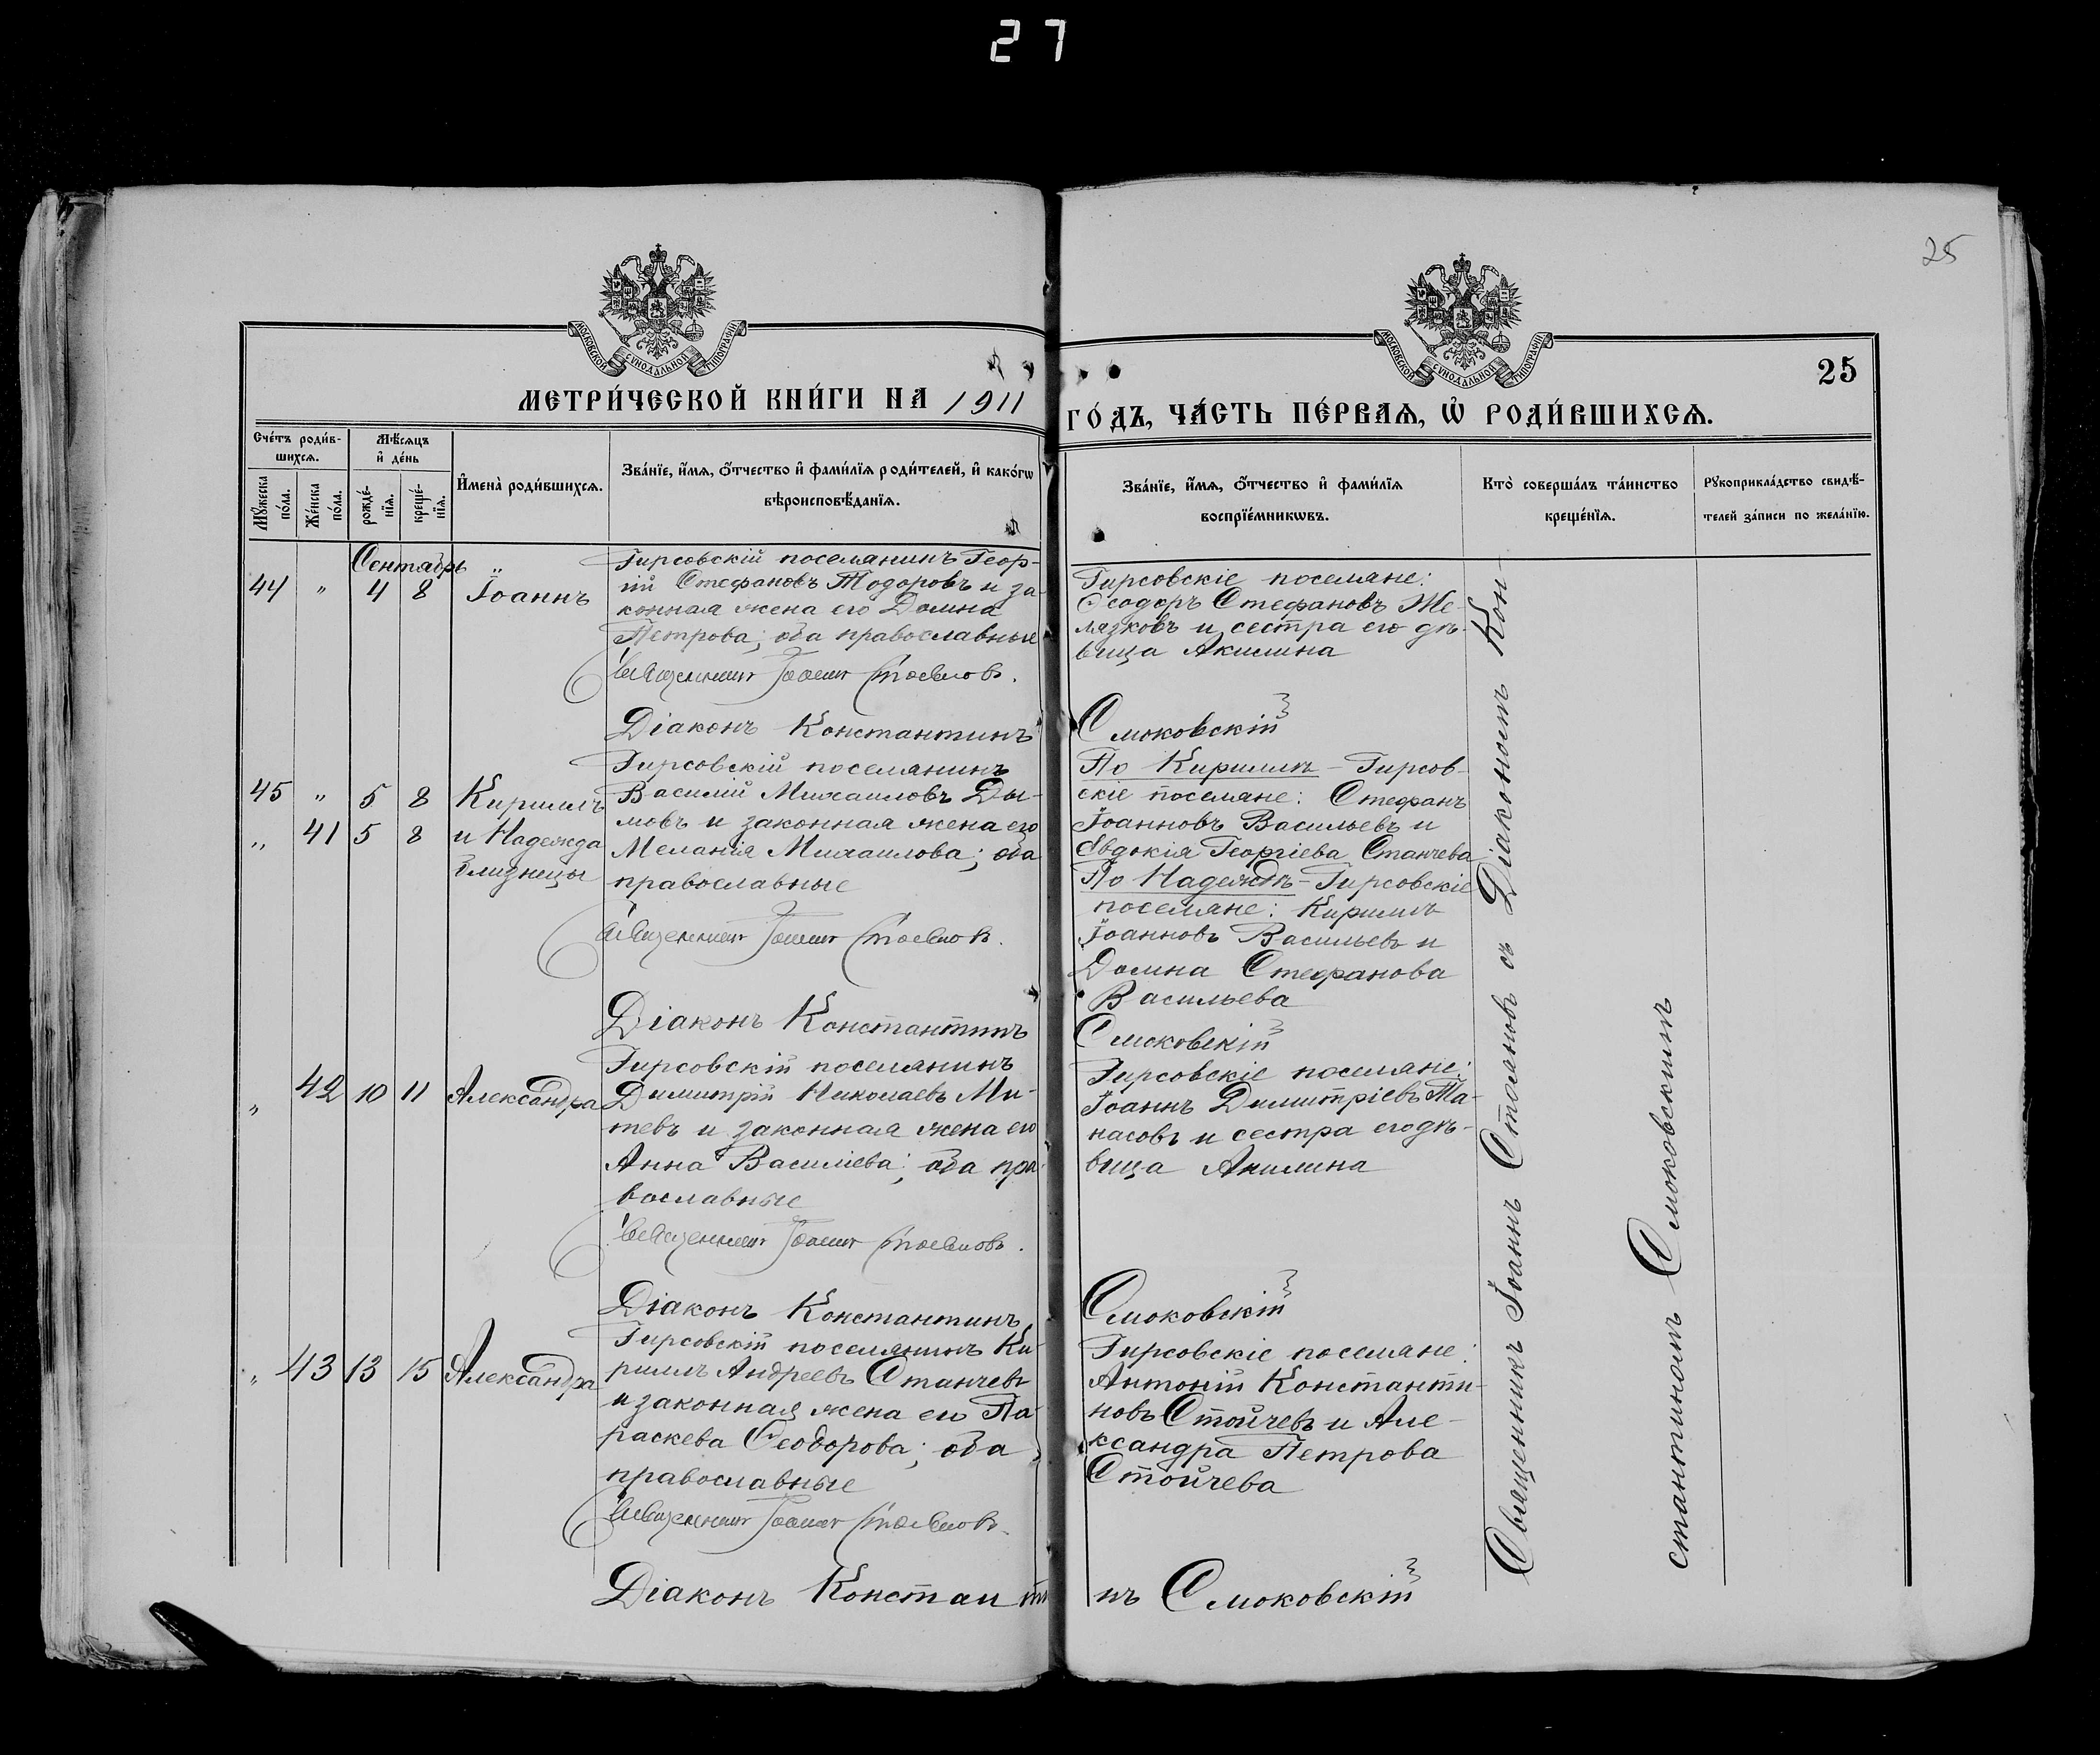 27
25
МОСКОВСКОЙ СѴНОДАЛЬНОЙ ТИПОГРАФІИ
МОСКОВСКОЙ СѴНОДАЛЬНОЙ ТИПОГРАФІИ
25
МЕТРИ́ЧЕСКОЙ КНИ́ГИ НА 1911
ГО́ДЪ, ЧА́СТЬ ПЕ́РВАѦ, Ѽ РОДИ́ВШИХСѦ.
Сче́тъ роди́в-
шихсѧ.
Мꙋ́жеска по́ла.
Же́нска по́ла.
Мѣ́сѧцъ
и҆ де́нь
рожде́-
нїѧ.
креще́-
нїѧ.
И҆мена̀ роди́вшихсѧ.
Зва́нїе, и҆́мѧ, ѻ҆́тчество и҆ фами́лїѧ роди́телей, и҆ како́гѡ
вѣроисповѣ́данїѧ.
Зва́нїе, и҆́мѧ, ѻ҆́тчество и҆ фами́лїѧ
воспрїе́мникѡвъ.
Кто̀ соверша́лъ та́инство
креще́нїѧ.
Рꙋкоприкла́дство свидѣ́-
телей за́писи по жела́нїю.
Сентябрь
44 " 4 8 Іоаннъ
Гирсовскій поселянинъ Геор-
гій Стефановъ Тодоровъ и за-
конная жена его Домна
Петрова; оба православные
Священникъ Іоаннъ Стояновъ.
Діаконъ Константинъ
Гирсовскіе поселяне:
Ѳеодоръ Стефановъ Же-
лязковъ и сестра его дѣ-
вица Акилина
Смоковскій
45 " 5 8 Кириллъ
" 41 5 8 и Надежда
близнецы
Гирсовскій поселянинъ
Василій Михаиловъ Ды-
мовъ и законная жена его
Меланія Михаилова; оба
православные
Священникъ Іоаннъ Стояновъ.
Діаконъ Константинъ
По Кириллѣ - Гирсов-
скіе поселяне: Стефанъ
Іоанновъ Васильевъ и
Євдокія Георгіева Станчева
По Надеждѣ - Гирсовскіе
поселяне: Кириллъ
Іоанновъ Васильевъ и
Домна Стефанова
Васильева
Смоковскій
" 42 10 11 Александра
Гирсовскій поселянинъ
Димитрій Николаевъ Ми-
тевъ и законная жена его
Анна Василіева; оба пра-
вославные
Священникъ Іоаннъ Стояновъ.
Діаконъ Константинъ
Гирсовскіе поселяне:
Іоаннъ Димитріевъ Та-
насовъ и сестра его дѣ-
вица Акилина
Смоковскій
" 43 13 15 Александра
Гирсовскій поселянинъ Ки-
риллъ Андреевъ Станчевъ
и законная жена его Па-
раскева Ѳеодорова; оба
православные
Священникъ Іоаннъ Стояновъ.
Діаконъ Константи
Гирсовскіе поселяне:
Антоній Константи-
новъ Стойчевъ и Але-
ксандра Петрова
Стойчева
нъ Смоковскій
Священникъ Іоаннъ Стояновъ съ Діакономъ Кон-
стантиномъ Смоковскимъ